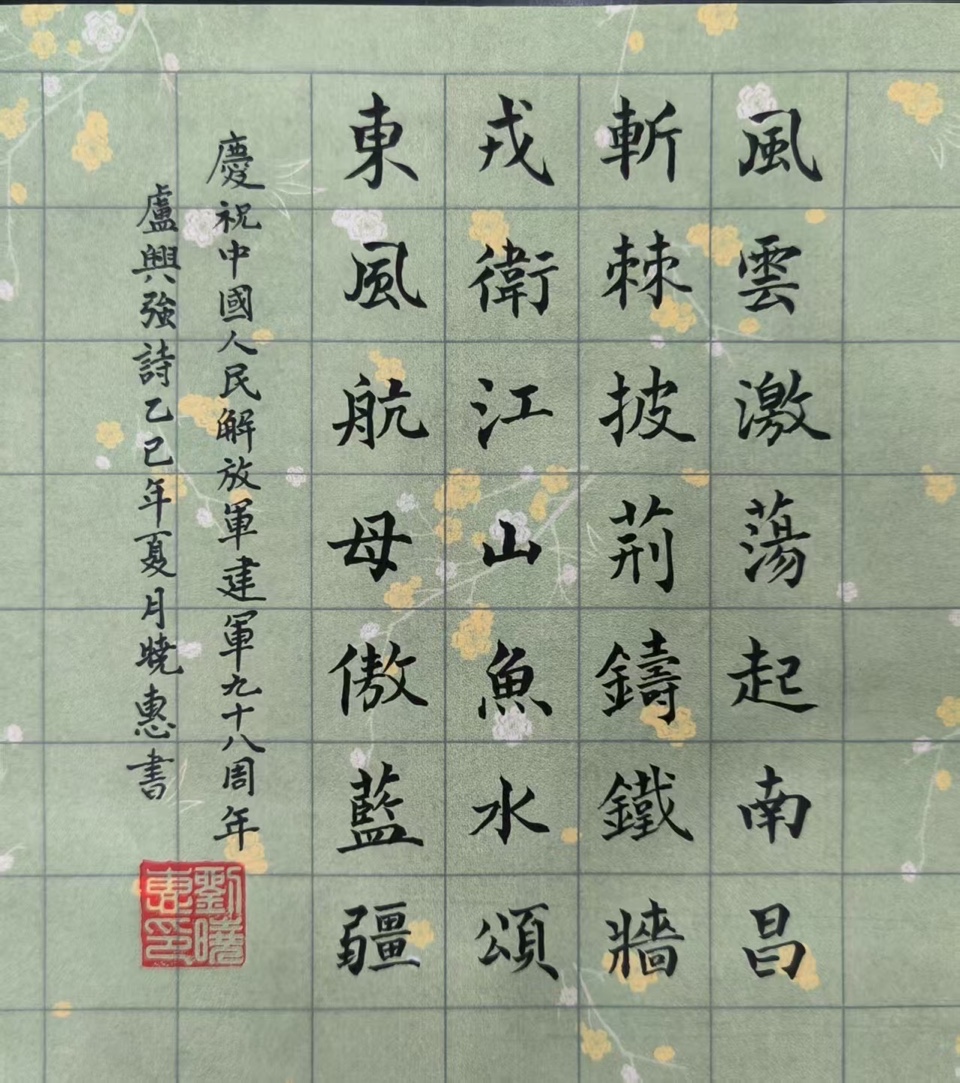 風雲激蕩起南昌
斬棘披荊鑄鐵牆
戎衛江山魚水頌
東風航母傲藍疆
慶祝中國人民解放軍建軍九十八周年
盧興強詩乙巳年夏月曉惠書
劉曉惠印